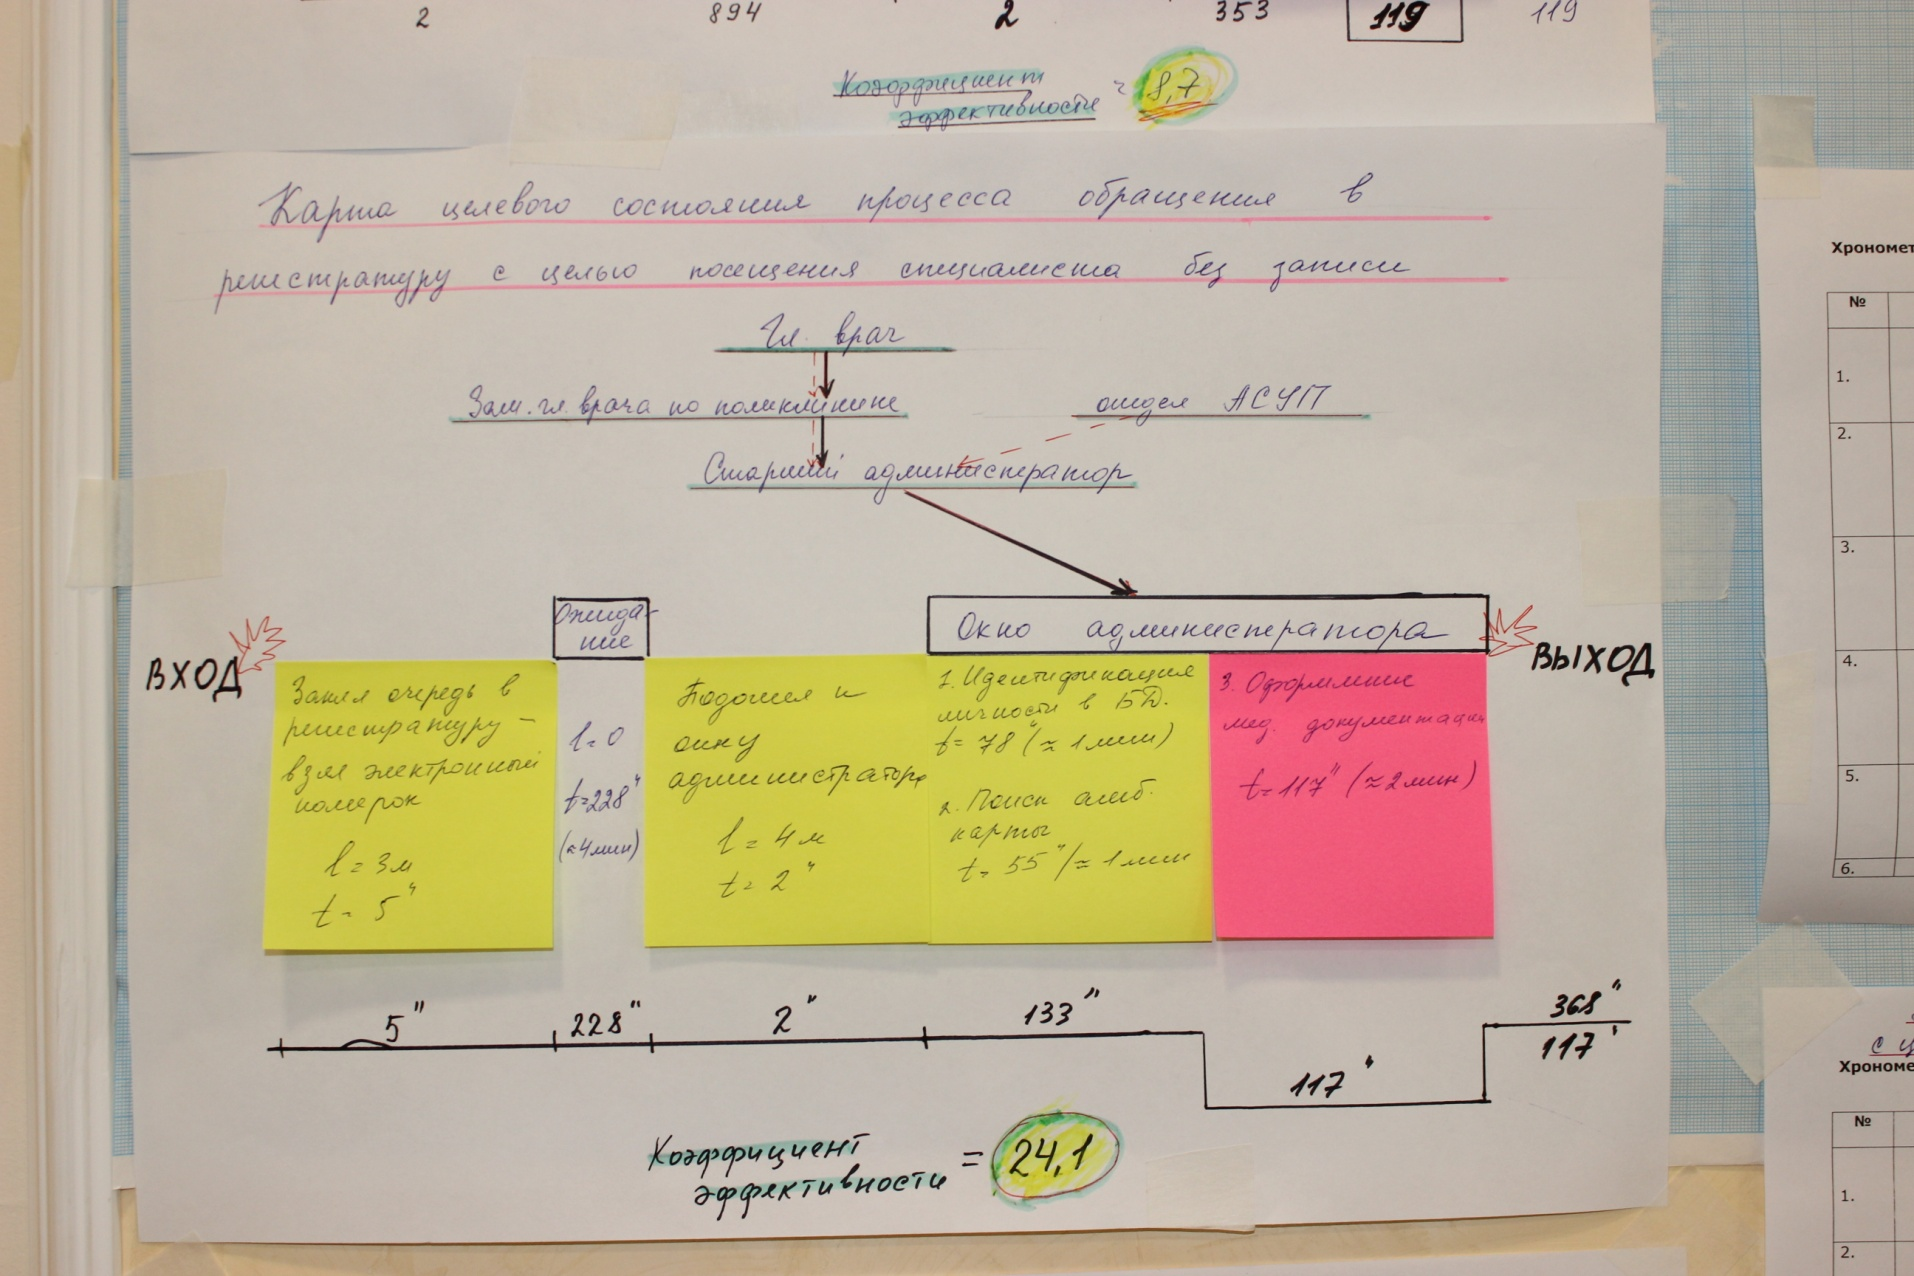 2 894 2 353 119 119
Коэффициент
эффективности = 8,7
Карта целевого состояния процесса обращения в
регистратуру с целью посещения специалиста без записи
Гл. врач
Зам. гл. врача по поликлинике
отдел АСУП
Старший администратор
Ожида-
ние
Окно администратора
ВХОД
ВЫХОД
Занял очередь в
регистратуру –
взял электронный
номерок
l = 3м
t = 5"
l = 0
t = 228"
(≈4мин)
Подошел к
окну
администратора
l = 4м
t = 2"
1. Идентификация
личности в БД.
t = 78" (≈ 1 мин)
2. Поиск амб.
карты
t = 55" (≈ 1 мин
3. Оформление
мед. документации
t = 117" (≈2мин)
5" 228" 2" 133" 368"
117" 117"
Коэффициент
эффективности = 24,1
Хрономет
№
1.
2.
3.
4.
5.
6.
с ц
Хрономе
№
1.
2.